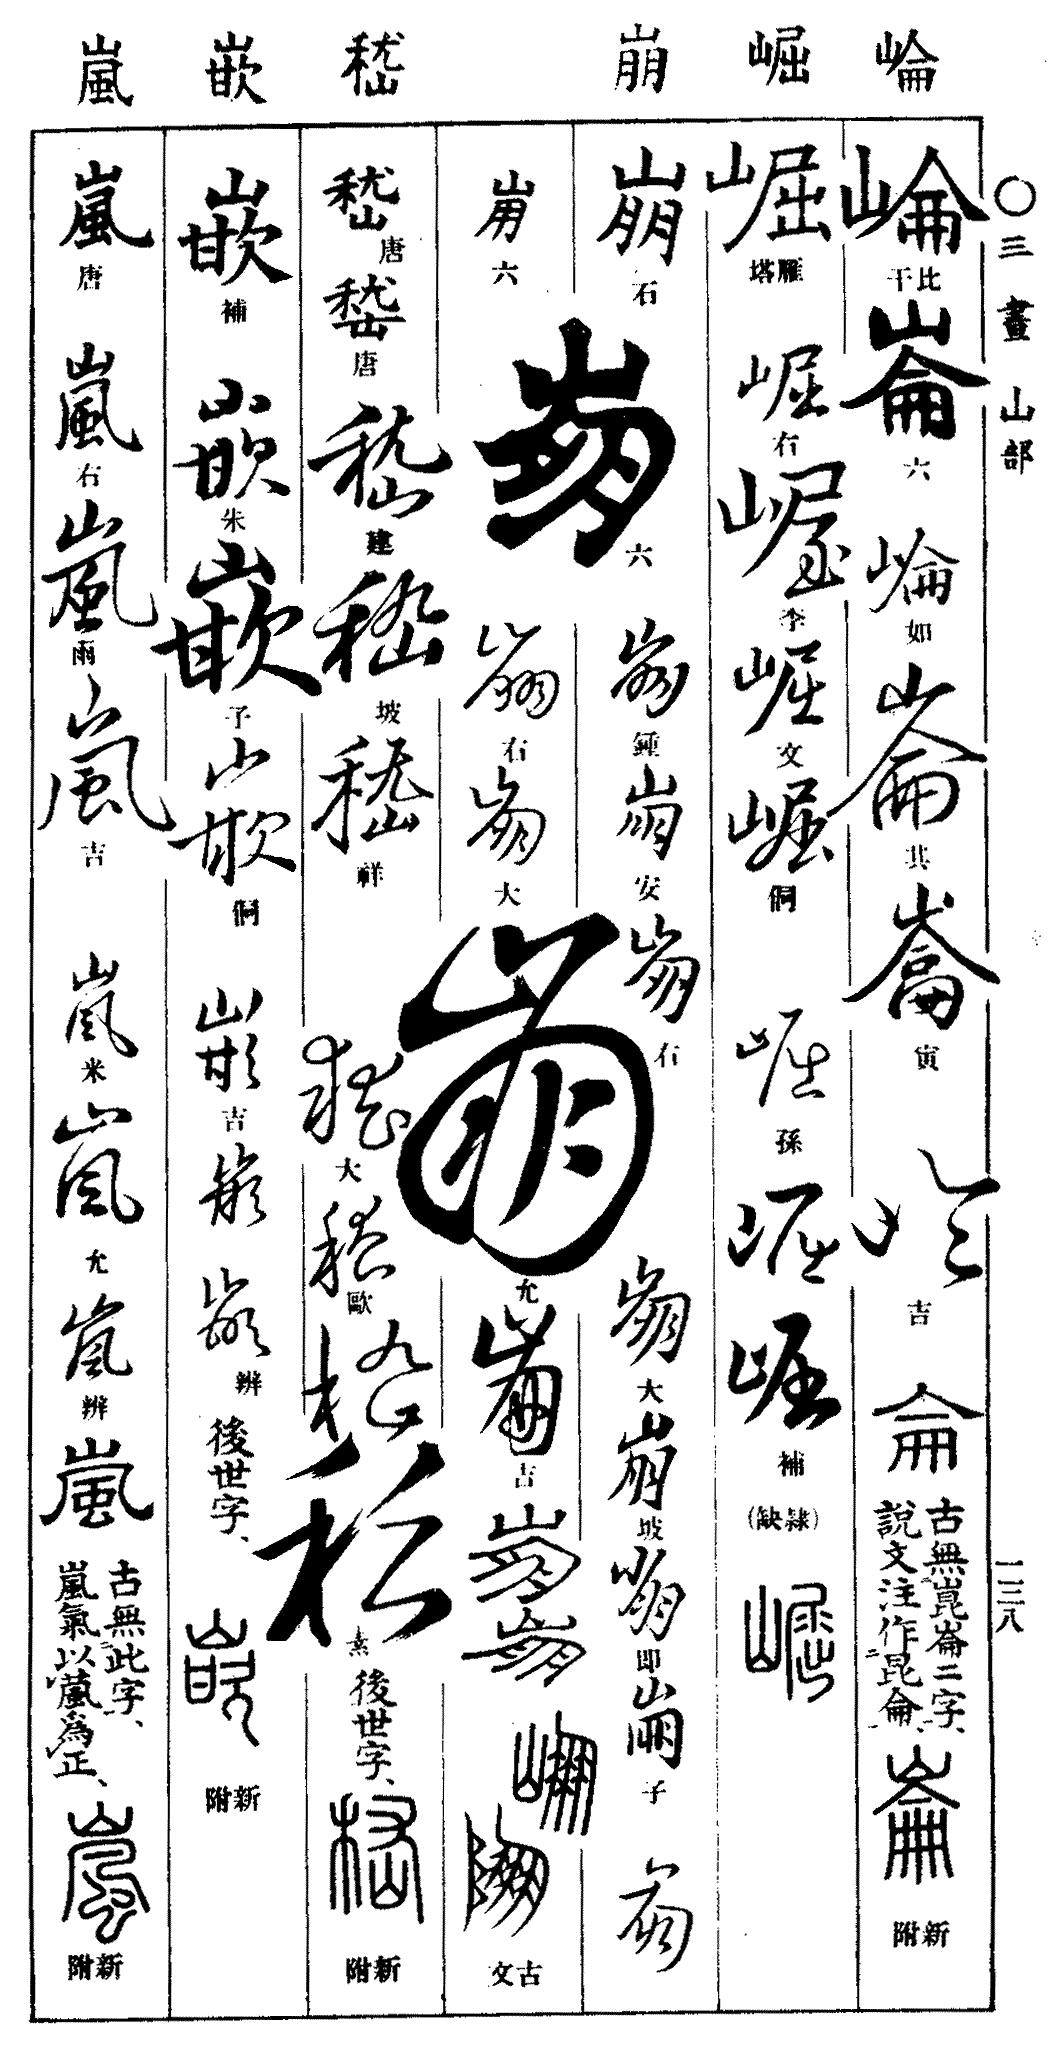 崘 崛 崩 嵇 嵌 嵐
〇三畫 山部
一三八
崘
比干
崙
六
崘
如
崙
共
崙
寅
吉
侖
古無崑崙二字、
説文注作昆侖、
崙
新附
崛
雁塔
崛
右
崛
李
崛
文
崛
侗
崛
孫
崛
崛
補
(隷缺)
崩
石
崩
鍾
崩
安
崩
石
崩
大
崩
坡
崩
即
崩
子
崩
崩
六
崩
六
崩
右
崩
大
崩
允
崩
吉
崩
崩
古文
嵇
唐
嵇
唐
嵇
建
嵇
坡
嵇
祥
嵇
大
嵇
歐
嵇
素
後世字、
新附
嵌
補
嵌
朱
嵌
子
嵌
侗
嵌
吉
嵌
嵌
辨
後世字、
新附
嵐
唐
嵐
右
嵐
雨
嵐
吉
嵐
米
嵐
允
嵐
辨
嵐
古無此字、
嵐氣以葻為正、
嵐
新附